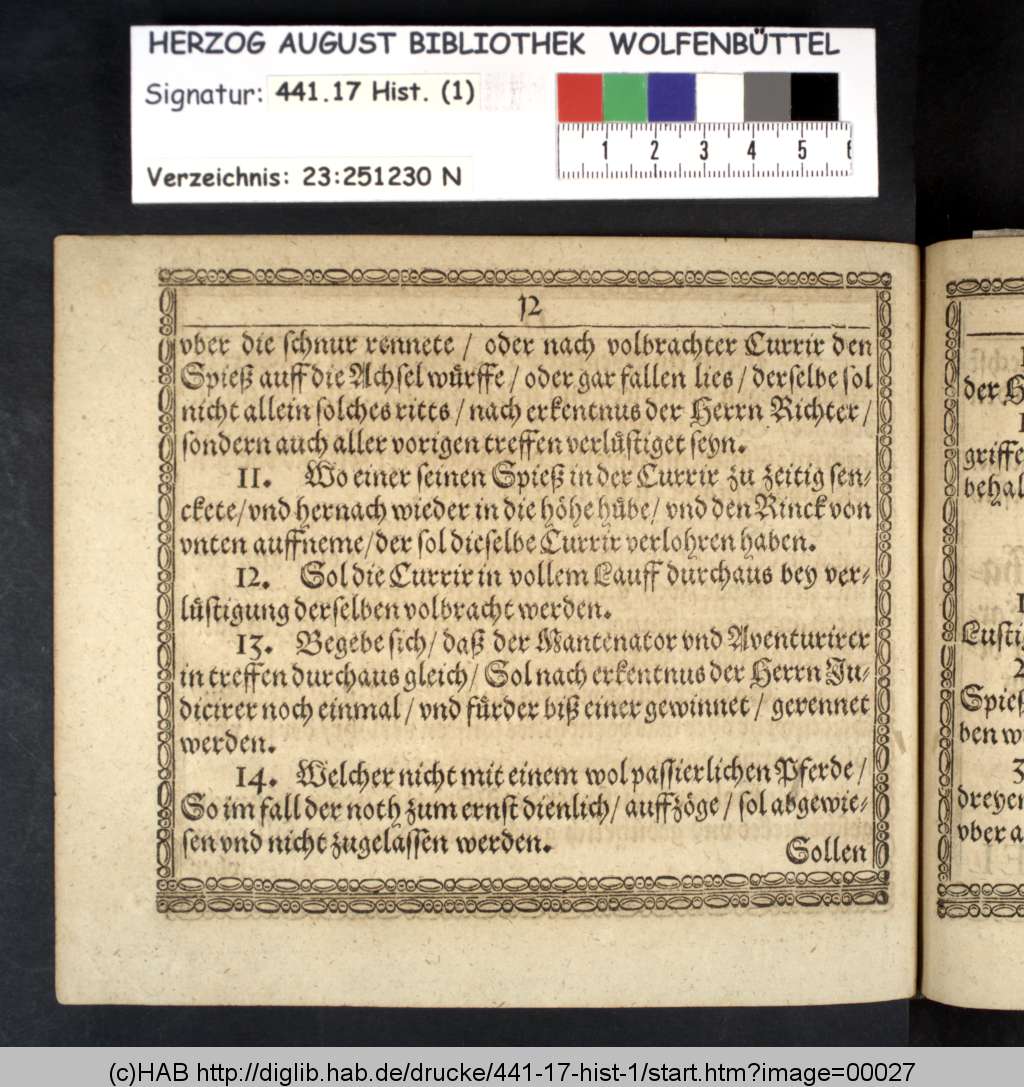 HERZOG AUGUST BIBLIOTHEK WOLFENBÜTTEL
Signatur: 441.17 Hist. (1)
1 2 3 4 5 6
Verzeichnis: 23:251230 N
12
vber die schnur rennete / oder nach volbrachter Currir den
Spieß auff die Achsel würffe / oder gar fallen lies / derselbe sol
nicht allein solches ritts / nach erkentnus der Herrn Richter /
sondern auch aller vorigen treffen verlüstiget seyn.
11. Wo einer seinen Spieß in der Currir zu zeitig sen-
ckete / vnd hernach wieder in die höhe hübe / vnd den Rinck von
vnten auffneme / der sol dieselbe Currir verlohren haben.
12. Sol die Currir in vollem Lauff durchaus bey ver-
lüstigung derselben volbracht werden.
13. Begebe sich / daß der Mantenator vnd Aventurirer
in treffen durchaus gleich / Sol nach erkentnus der Herrn Ju-
dicirer noch einmal / vnd fürder biß einer gewinnet / gerennet
werden.
14. Welcher nicht mit einem wol passierlichen Pferde /
So im fall der noth zum ernst dienlich / auffzöge / sol abgewie-
sen vnd nicht zugelassen werden.
Sollen
der H
griffe
behal
Lustig
2
Spieß
ben w
3
dreyen
vber a
(c)HAB http://diglib.hab.de/drucke/441-17-hist-1/start.htm?image=00027